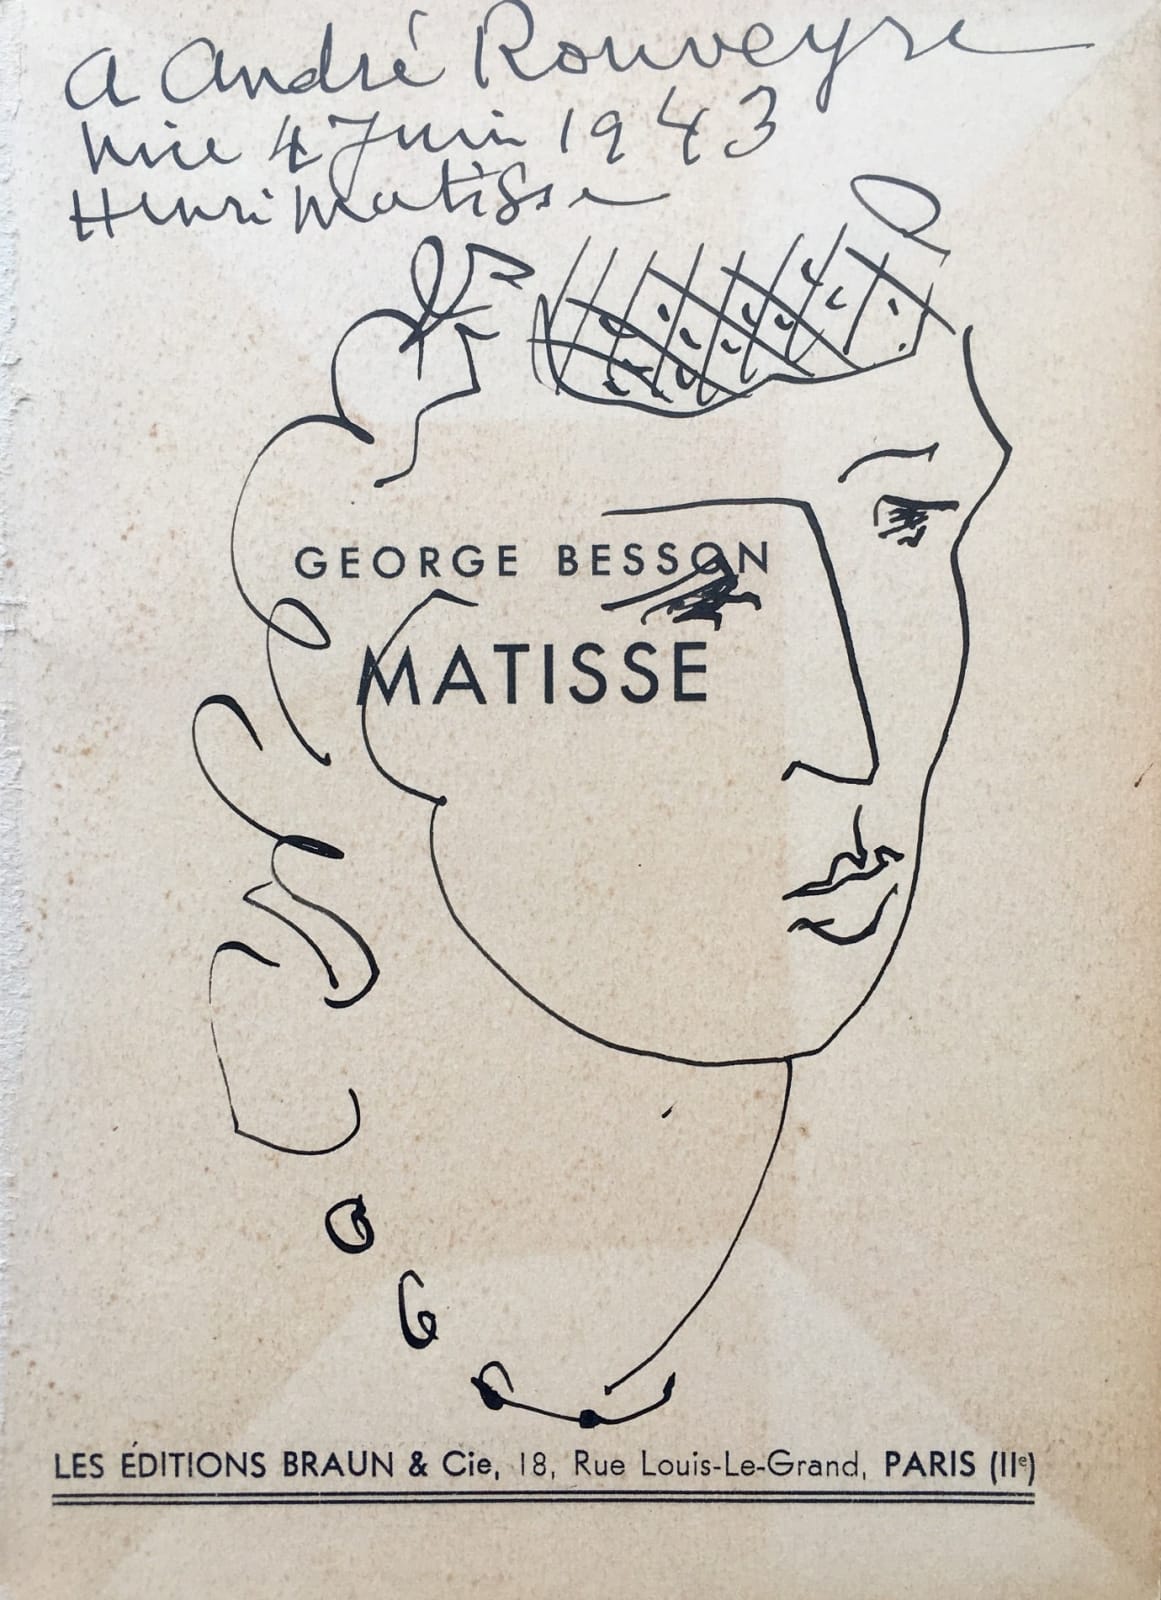 A André Rouveyre
Nice 4 Juin 1943
Henri Matisse
GEORGE BESSON
MATISSE
LES ÉDITIONS BRAUN & Cie, 18, Rue Louis-Le-Grand, PARIS (IIe)